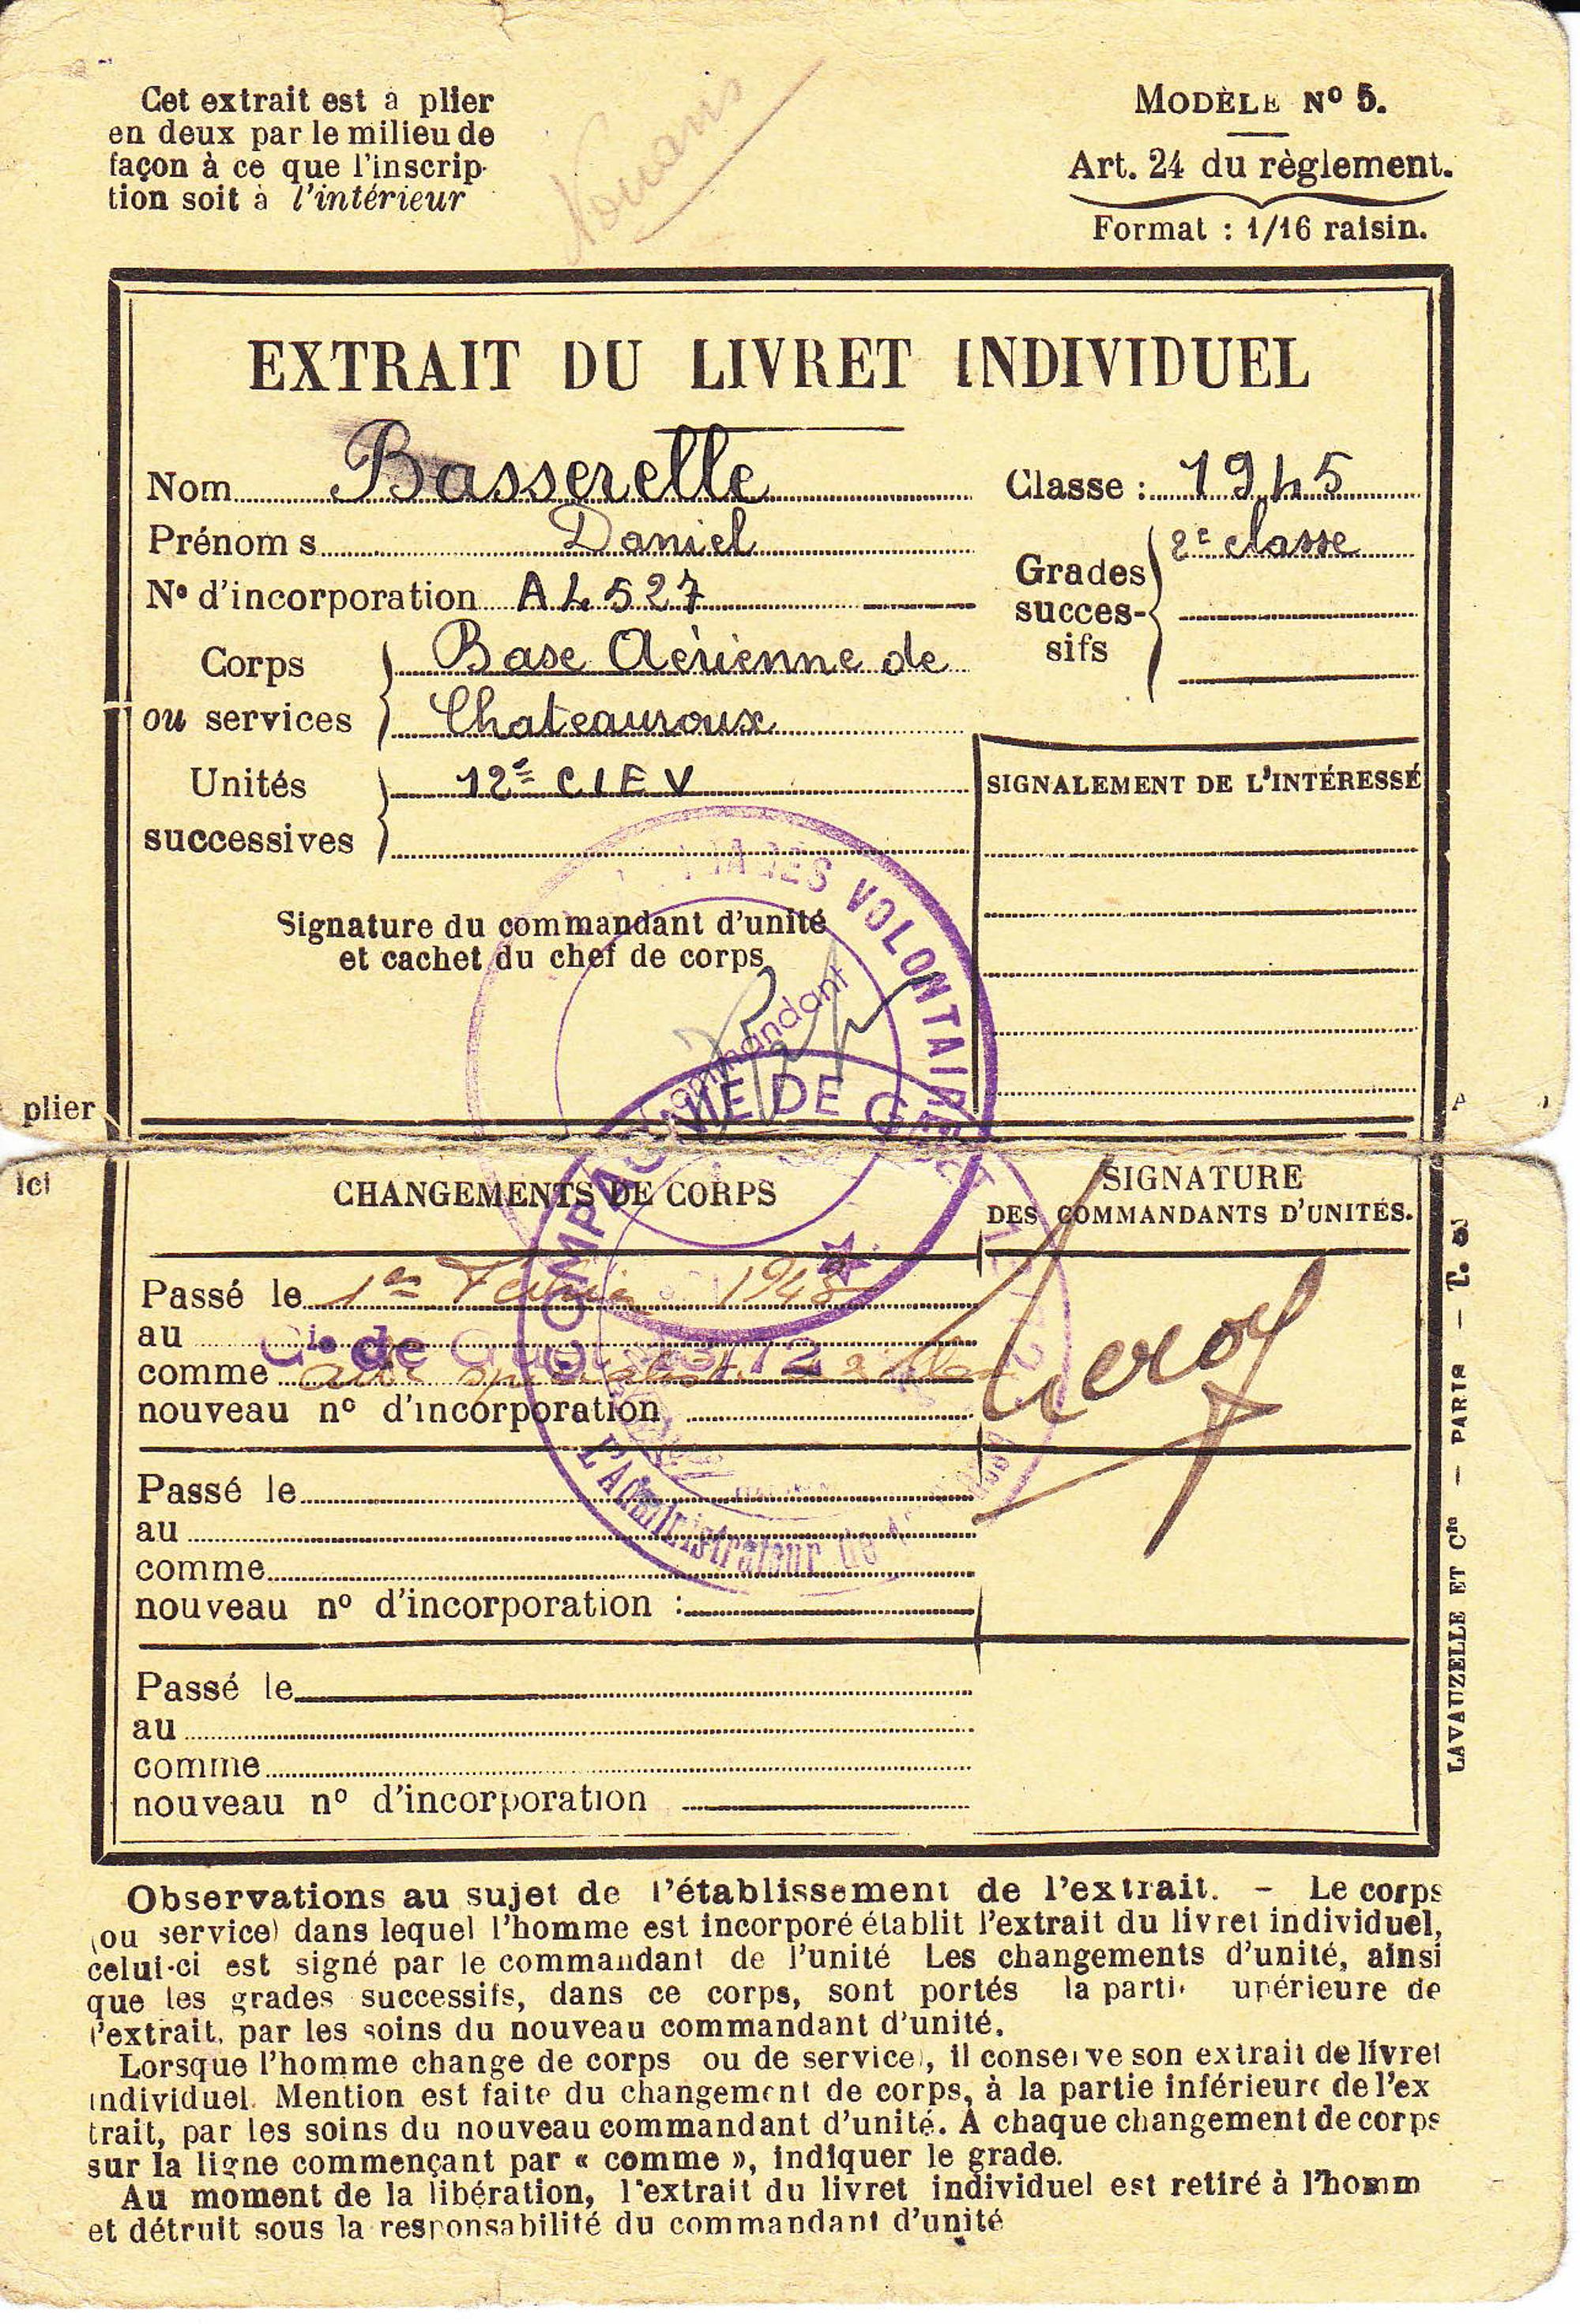 Cet extrait est à plier
en deux par le milieu de
façon à ce que l'inscrip-
tion soit à l'intérieur
MODÈLE Nº 5.
Art. 24 du règlement.
Format : 1/16 raisin.
EXTRAIT DU LIVRET INDIVIDUEL
Nom Basserelle
Classe : 1945
Prénoms Daniel
Grades successifs 2e classe
Nº d'incorporation A4527
Corps Base Aérienne de
ou services Chateauroux
Unités 12e CIEV
successives
SIGNALEMENT DE L'INTÉRESSÉ
VOLONTAIR
Signature du commandant d'unité
et cachet du chef de corps
Commandant
COMPAGNIE DE GEST
plier
ici
CHANGEMENTS DE CORPS
SIGNATURE
DES COMMANDANTS D'UNITÉS.
Passé le 1er 1948
au Cie de
comme aide
nouveau nº d'incorporation
Leroy
L'Administrateur de
Passé le
au
comme
nouveau nº d'incorporation :
Passé le
au
comme
nouveau nº d'incorporation
LAVAUZELLE ET Cie — PARIS — T. 3
Observations au sujet de l'établissement de l'extrait. – Le corps
(ou service) dans lequel l'homme est incorporé établit l'extrait du livret individuel,
celui-ci est signé par le commandant de l'unité Les changements d'unité, ainsi
que les grades successifs, dans ce corps, sont portés la parti upérieure de
l'extrait, par les soins du nouveau commandant d'unité.
Lorsque l'homme change de corps ou de service), il conserve son extrait de livret
individuel. Mention est faite du changement de corps, à la partie inférieure de l'ex
trait, par les soins du nouveau commandant d'unité. A chaque changement de corps
sur la ligne commençant par « comme », indiquer le grade.
Au moment de la libération, l'extrait du livret individuel est retiré à l'homm
et détruit sous la responsabilité du commandant d'unité